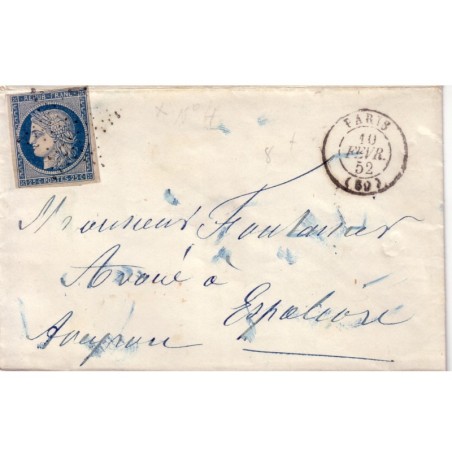 REPUB. FRANC.
25 c. POSTES 25 c.
PARIS
10
FEVR.
52
(60)
Monsieur
Avoué à
Aveyron